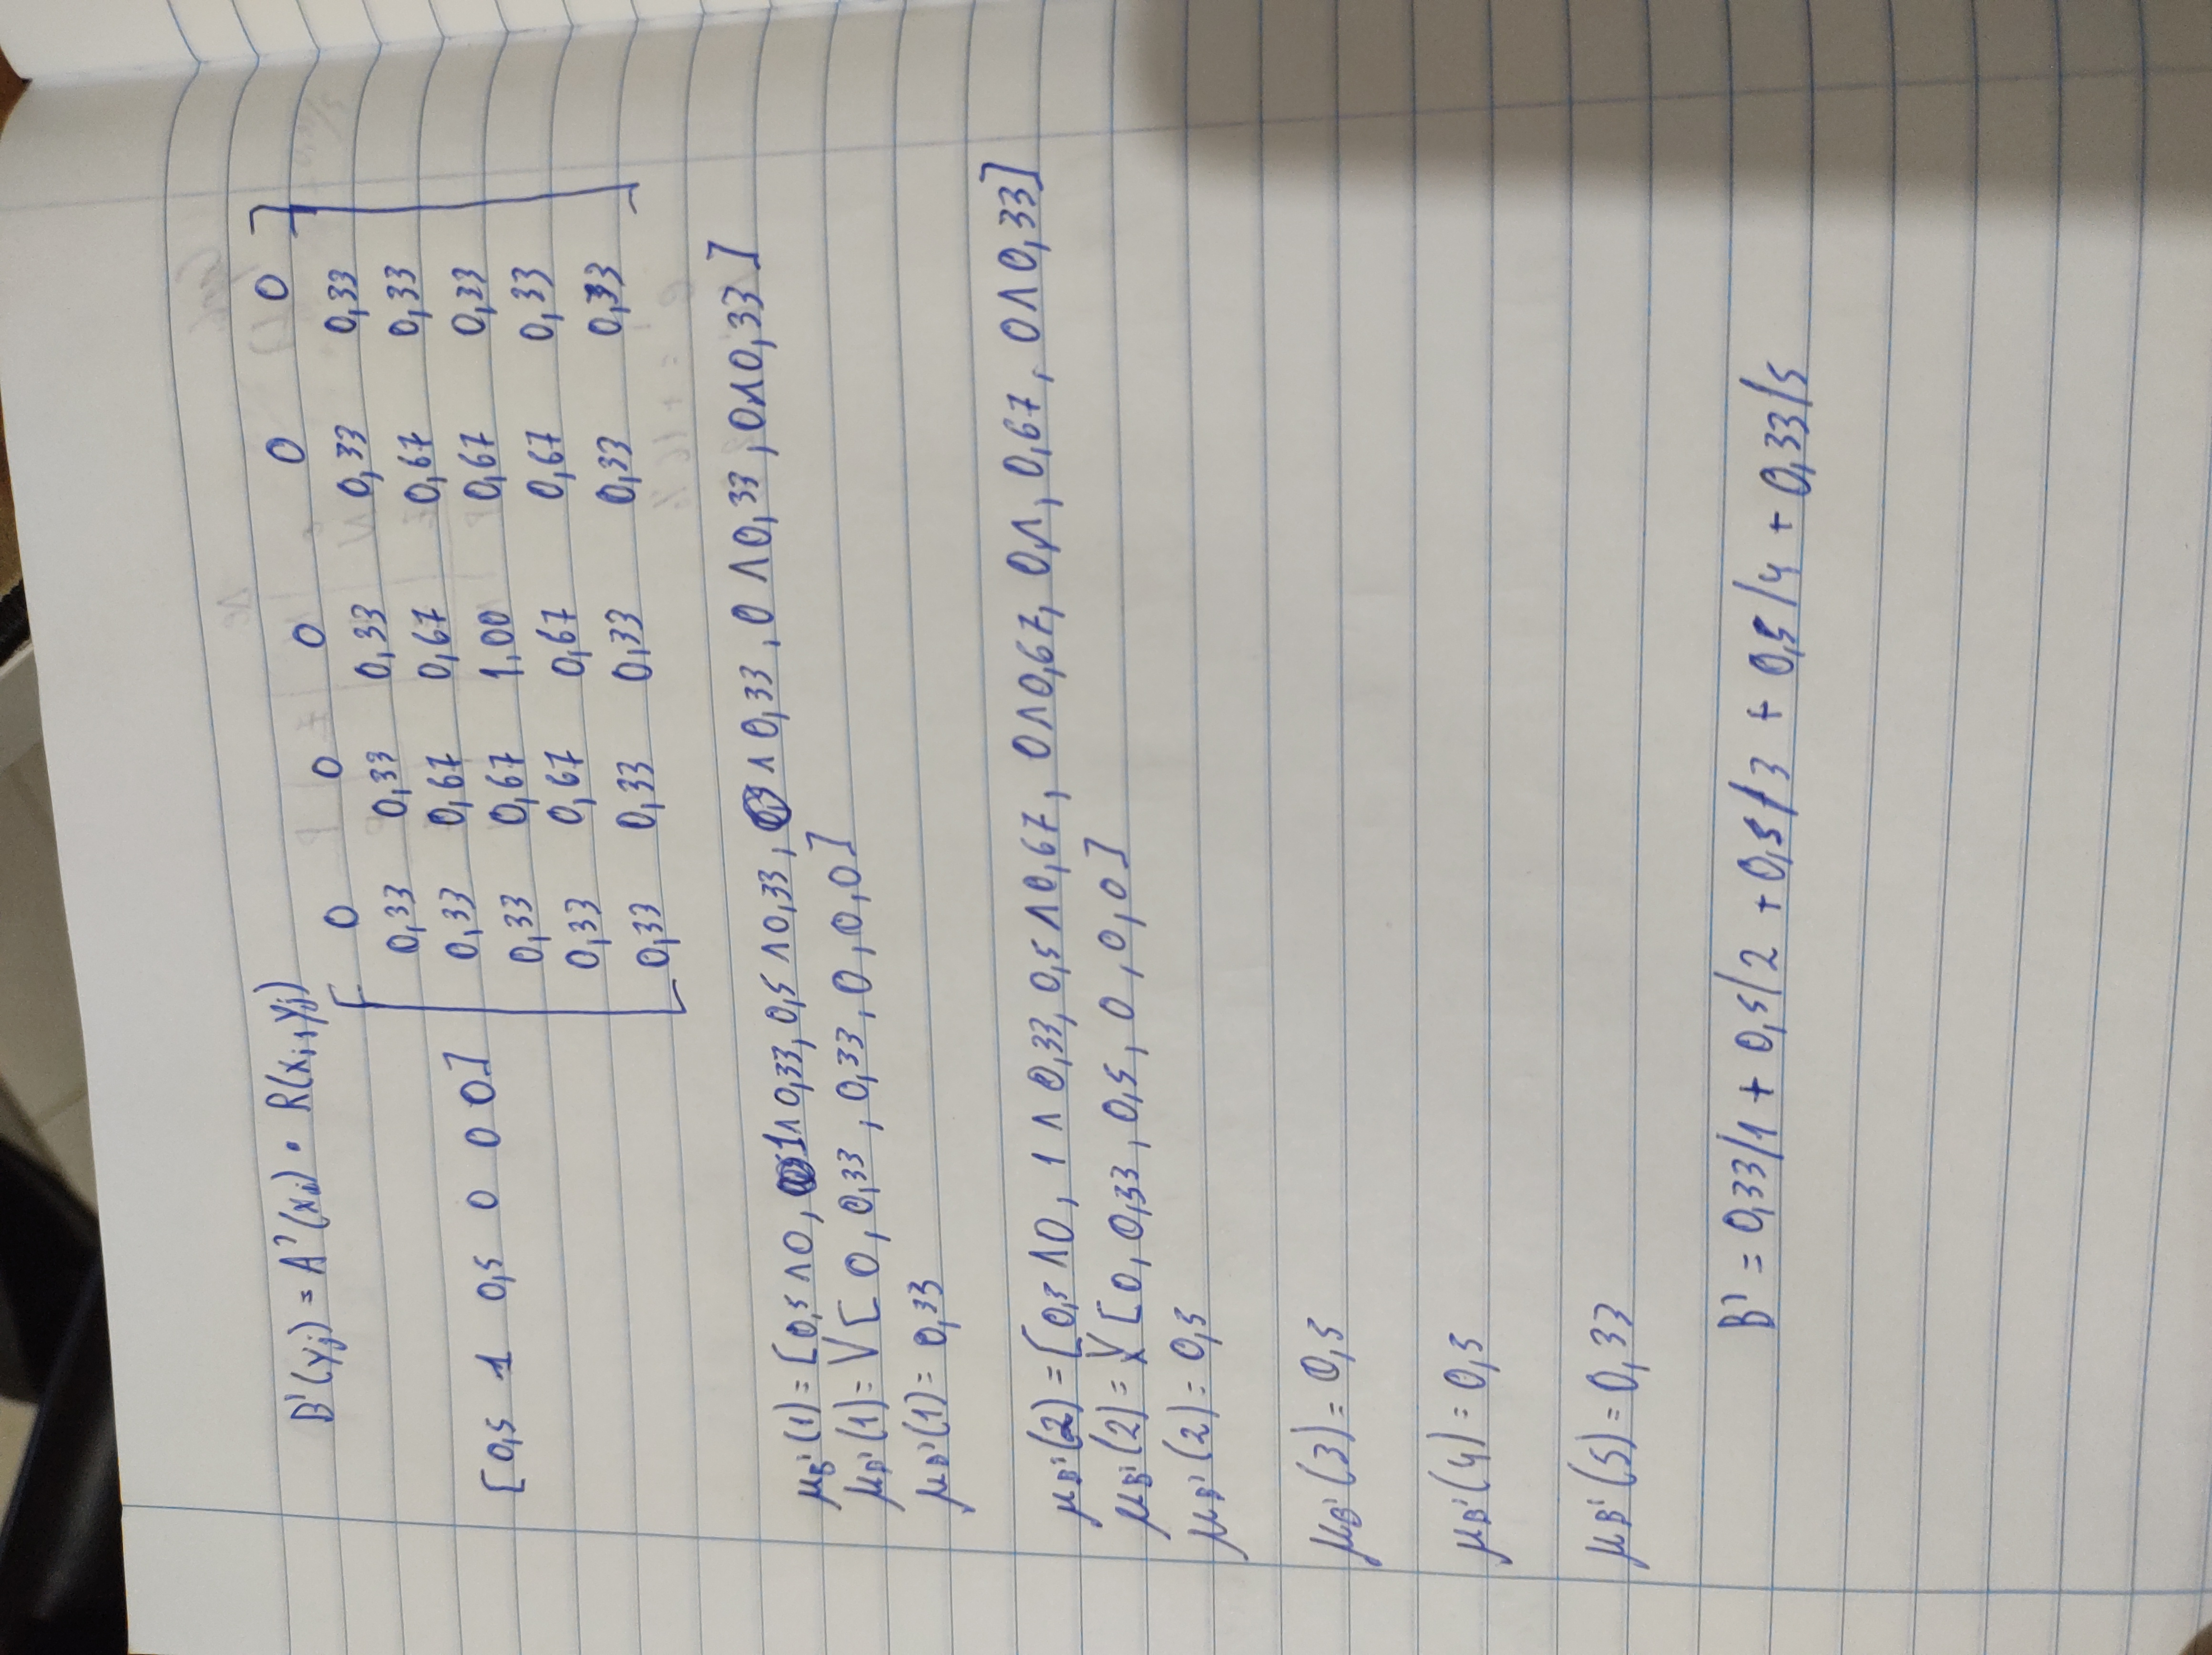 B'(yj) = A'(xi) • R(xi, yj)
0 0 0 0 0
0,33 0,33 0,33 0,33 0,33
0,33 0,67 0,67 0,67 0,33
[0,5 1 0,5 0 0 0]
0,33 0,67 1,00 0,67 0,33
0,33 0,67 0,67 0,67 0,33
0,33 0,33 0,33 0,33 0,33
μB'(1) = [0,5 ∧ 0, 1 ∧ 0,33, 0,5 ∧ 0,33, 0 ∧ 0,33, 0 ∧ 0,33, 0 ∧ 0,33]
μB'(1) = V [0, 0,33, 0,33, 0, 0, 0]
μB'(1) = 0,33
μB'(2) = [0,5 ∧ 0, 1 ∧ 0,33, 0,5 ∧ 0,67, 0 ∧ 0,67, 0 ∧, 0,67, 0 ∧ 0,33]
μB'(2) = V [0, 0,33, 0,5, 0, 0, 0]
μB'(2) = 0,5
μB'(3) = 0,5
μB'(4) = 0,5
μB'(5) = 0,33
B' = 0,33/1 + 0,5/2 + 0,5/3 + 0,5/4 + 0,33/5